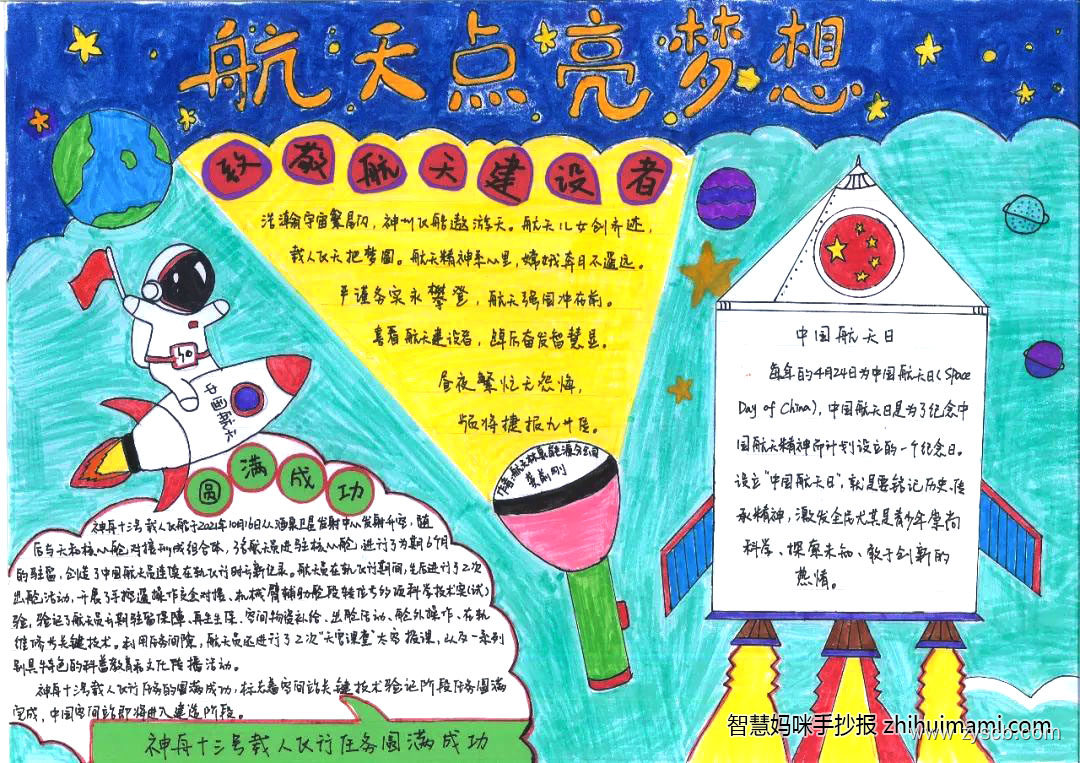 航天点亮梦想
致敬航天建设者
浩瀚宇宙繁星闪,神州飞船遨游天。航天儿女创奇迹,
载人飞天把梦圆。航天精神牵心里,嫦娥奔日不遥远。
严谨务实永攀登,航天强国冲在前。
喜看航天建设者,踔厉奋发智慧显。
昼夜繁忙无怨悔,
频将捷报九州展。
中国航天
圆满成功
神舟十三号载人飞船于2021年10月16日从酒泉卫星发射中心发射升空,随
后与天和核心舱对接形成组合体,3名航天员进驻核心舱,进行了为期6个月
的驻留,创造了中国航天员连续在轨飞行时长新记录。航天员在轨飞行期间,先后进行了2次
出舱活动,开展了手控遥操作交会对接、机械臂辅助舱段转位等多项科学技术实(试)
验,验证了航天员长期驻留保障、再生生保、空间物资补给、出舱活动、舱外操作、在轨
维修等关键技术。利用任务间隙,航天员还进行了2次“天宫课堂”太空授课,以及一系列
别具特色的科普教育和文化传播活动。
神舟十三号载人飞行任务的圆满成功,标志着空间站关键技术验证阶段任务圆满
完成,中国空间站即将进入建造阶段。
神舟十三号载人飞行任务圆满成功
中国航天日
每年的4月24日为中国航天日(Space
Day of China),中国航天日是为了纪念中
国航天精神而计划设立的一个纪念日。
设立“中国航天日”,就是要铭记历史、传
承精神,激发全民尤其是青少年崇尚
科学、探索未知、敢于创新的
热情。
智慧妈咪手抄报 zhihuimami.com
www.zyscb.com